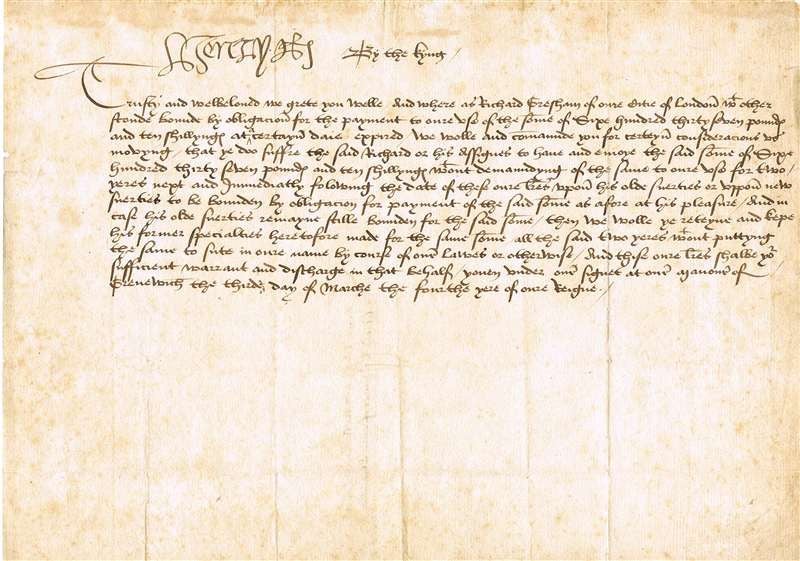 Henry R By the king
Trusty and welbeloud we grete you welle And where as Richard Gresham of oure Citie of London wt other
stonde bounde by obligacion for the payment to oure vse of the some of Sixe hundred thirty seven poundes
and ten shyllynges at a certayn daie expired We wolle and comaunde you for certeyn consideracions vs
movyng that ye doo suffre the said Richard or his Assignes to have and enioye the said some of Sixe
hundred thirty seven poundes and ten shyllynges wtout demaundyng of the same to oure vse for two
yeres next and Immediatly folowing the date of these oure lres vpon his olde suerties or vppon new
suerties to be bounden by obligacion for payment of the said some as afore at his pleasure And in
case his olde suerties remayne stille bounden for the said some then we wolle ye reteyne and kepe
his former specialties heretofore made for the same some all the said two yeres wtout puttyng
the same to sute in oure name by course of our lawes or otherwise And thise oure lres shalbe yor
sufficient warrant and discharge in that behalf yoven vnder our signet at our Manour of
Grenewich the thirde day of Marche the fourthe yere of oure Reigne